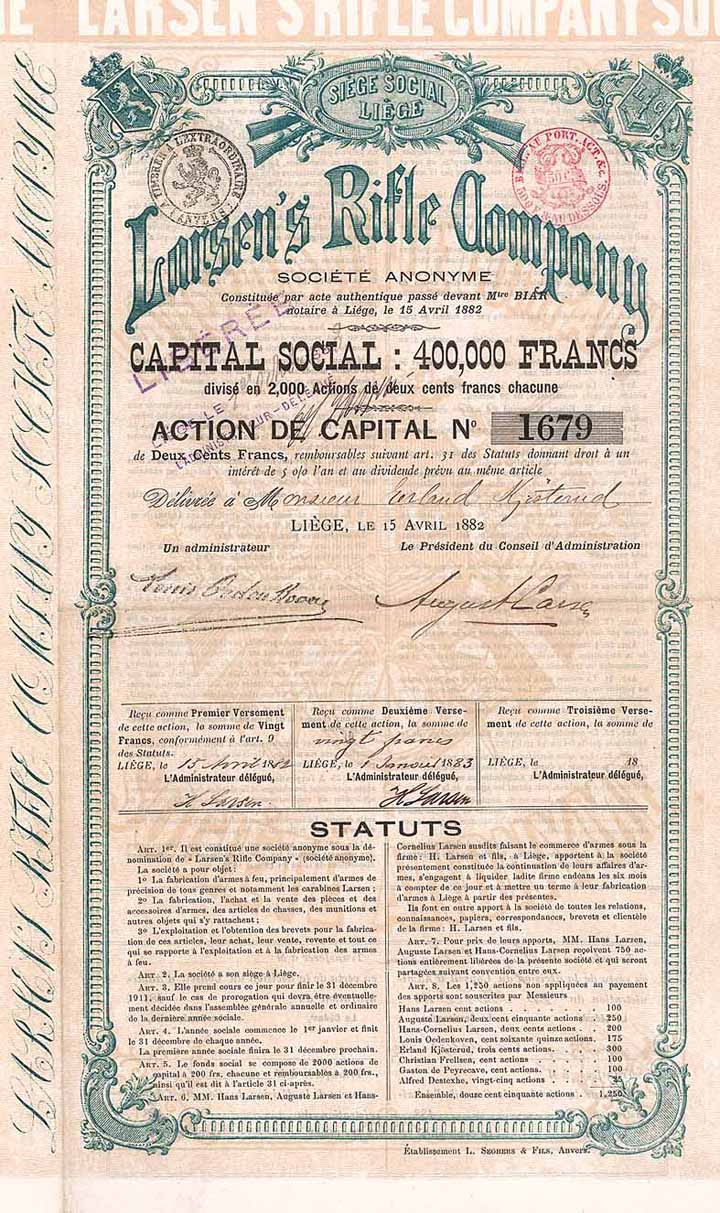 LARSEN'S RIFLE COMPANY SO
SIÉGE SOCIAL
LIÉGE
LIGE
TIMBRE A L'EXTRAORDINAIRE
ANVERS
Larsen's Rifle Company
SOCIÉTÉ ANONYME
Constituée par acte authentique passé devant Mtre BIAR
notaire à Liége, le 15 Avril 1882
LIBÉRÉE
CAPITAL SOCIAL : 400,000 FRANCS
divisé en 2,000 Actions de deux cents francs chacune
ACTION DE CAPITAL No 1679
de Deux Cents Francs, remboursables suivant art. 31 des Statuts donnant droit à un
intérêt de 5 o/o l'an et au dividende prévu au même article
Délivrée à Monsieur Erland Kjösterud
LIÈGE, LE 15 AVRIL 1882
Un administrateur
Le Président du Conseil d'Administration
August Larsen
Reçu comme Premier Versement
de cette action, la somme de Vingt
Francs, conformément à l'art. 9
des Statuts.
LIÉGE, le 15 Avril 1882
L'Administrateur délégué,
H Larsen
Reçu comme Deuxième Verse-
ment de cette action, la somme de
vingt francs
LIÉGE, le 1 Janvier 1883
L'Administrateur délégué,
H Larsen
Reçu comme Troisième Verse-
ment de cette action, la somme de
LIÉGE, le 18
L'Administrateur délégué,
STATUTS
ART. 1er. Il est constitué une société anonyme sous la dé-
nomination de « Larsen's Rifle Company » (société anonyme).
La société a pour objet :
1º La fabrication d'armes à feu, principalement d'armes de
précision de tous genres et notamment les carabines Larsen ;
2º La fabrication, l'achat et la vente des pièces et des
accessoires d'armes, des articles de chasses, des munitions et
autres objets qui s'y rattachent ;
3º L'exploitation et l'obtention des brevets pour la fabrica-
tion de ces articles, leur achat, leur vente, revente et tout ce
qui se rapporte à l'exploitation et à la fabrication des armes
à feu.
ART. 2. La société a son siége à Liége.
ART. 3. Elle prend cours ce jour pour finir le 31 décembre
1911, sauf le cas de prorogation qui devra être éventuelle-
ment décidée dans l'assemblée générale annuelle et ordinaire
de la dernière année sociale.
ART. 4. L'année sociale commence le 1er janvier et finit
le 31 décembre de chaque année.
La première année sociale finira le 31 décembre prochain.
ART. 5. Le fonds social se compose de 2000 actions de
capital à 200 frs, chacune et remboursables à 200 frs.,
ainsi qu'il est dit à l'article 31 ci-après.
ART. 6. MM. Hans Larsen, Auguste Larsen et Hans-
Cornelius Larsen susdits faisant le commerce d'armes sous la
firme : H. Larsen et fils, à Liége, apportent à la société
présentement constituée la continuation de leurs affaires d'ar-
mes, s'engagent à liquider ladite firme endéans les six mois
à compter de ce jour et à mettre un terme à leur fabrication
d'armes à Liége à partir des présentes.
Ils font en outre apport à la société de toutes les relations,
connaissances, papiers, correspondances, brevets et clientèle
de la firme : H. Larsen et fils.
ART. 7. Pour prix de leurs apports, MM. Hans Larsen,
Auguste Larsen et Hans-Cornelius Larsen reçoivent 750 ac-
tions entièrement libérées de la présente société et qui seront
partagées suivant convention entre eux.
ART. 8. Les 1,250 actions non appliquées au payement
des apports sont souscrites par Messieurs
Hans Larsen cent actions 100
Auguste Larsen, deux cent cinquante actions 250
Hans-Cornelius Larsen, deux cents actions 200
Louis Oedenkoven, cent soixante quinze actions. 175
Erland Kjösterud, trois cents actions. 300
Christian Frellsen, cent actions 100
Gaston de Peyrecave, cent actions. 100
Alfred Destexhe, vingt-cinq actions 25
Ensemble, douze cent cinquante actions 1,250
Établissement L. SEGHERS & FILS, Anvers.
LARSEN'S RIFLE COMPANY SOCIÉTÉ ANONYME